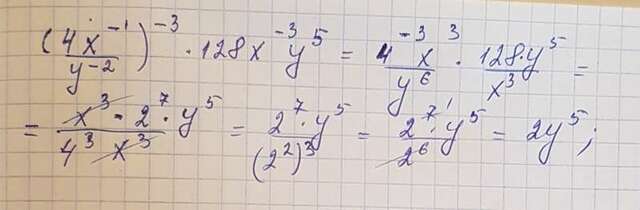 (4x⁻¹/y⁻²)⁻³ · 128x⁻³y⁵ = 4⁻³x³/y⁶ · 128·y⁵/x³ =
= x³·2⁷·y⁵/4³x³ = 2⁷·y⁵/(2²)³ = 2⁷·y⁵/2⁶ = 2y⁵;